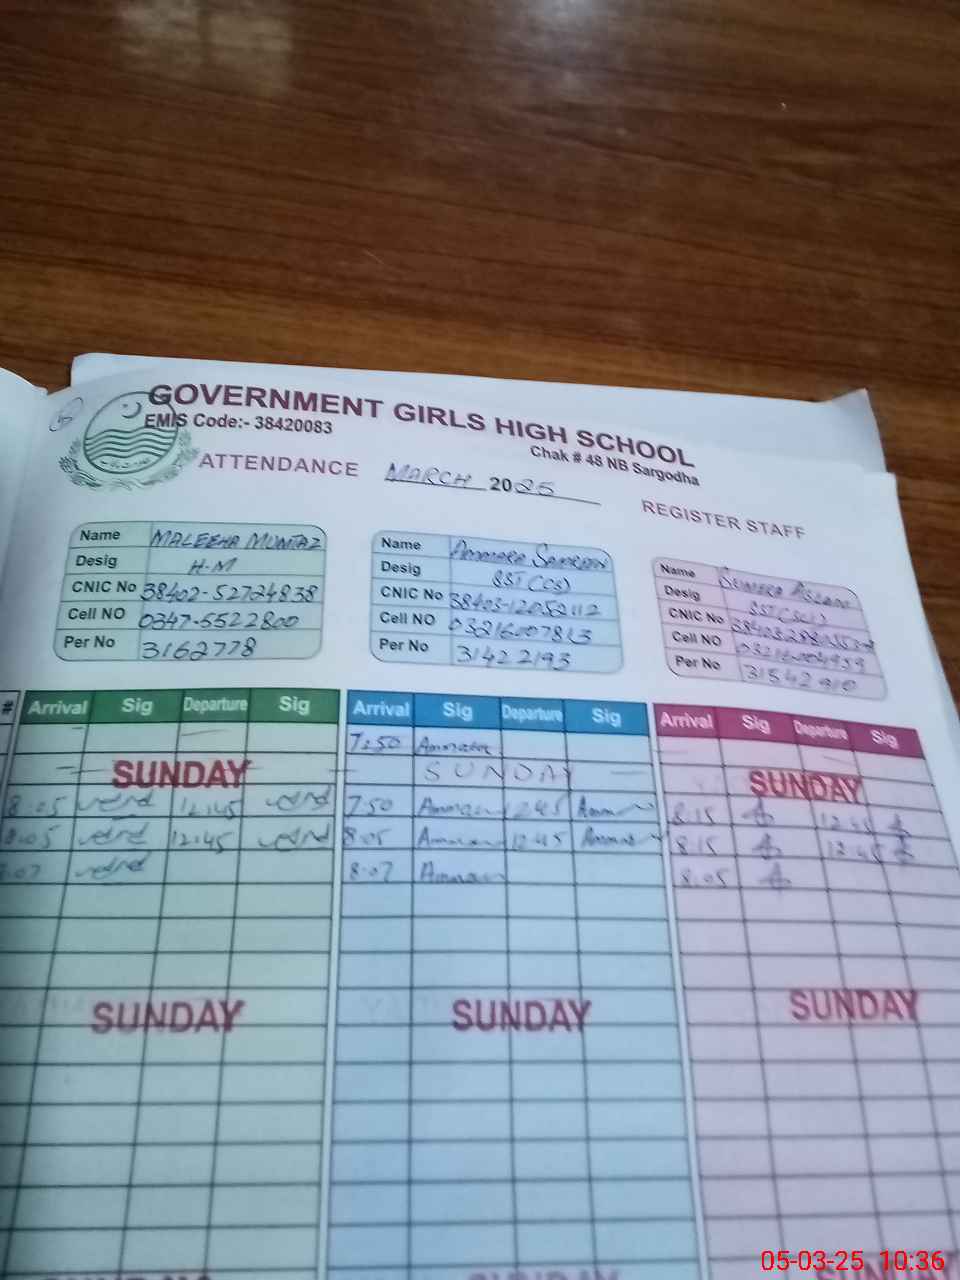 GOVERNMENT GIRLS HIGH SCHOOL
EMIS Code:- 38420083
Chak # 48 NB Sargodha
ATTENDANCE MARCH 2025 REGISTER STAFF
Name MALEEHA MUMTAZ
Desig H-M
CNIC No 38402-5272483-8
Cell NO 0347-5522800
Per No 3162778
Name Ammara
Desig SST (CS)
CNIC No 38403-1205211 2
Cell NO 03216007813
Per No 31422193
Name
Desig SST (Sci)
CNIC No
Cell NO 03216004959
Per No 31542910
# Arrival Sig Departure Sig
SUNDAY
8:05 12:45
8:05 12:45
8:07
SUNDAY
Arrival Sig Departure Sig
7:50 Ammara
SUNDAY
7:50 Ammara 12:45 Ammara
8:05 Ammara 12:45 Ammara
8:07 Ammara
SUNDAY
SUNDAY
Arrival Sig Departure Sig
SUNDAY
8:15 12:45
8:15 12:45
8:05
SUNDAY
05-03-25 10:36